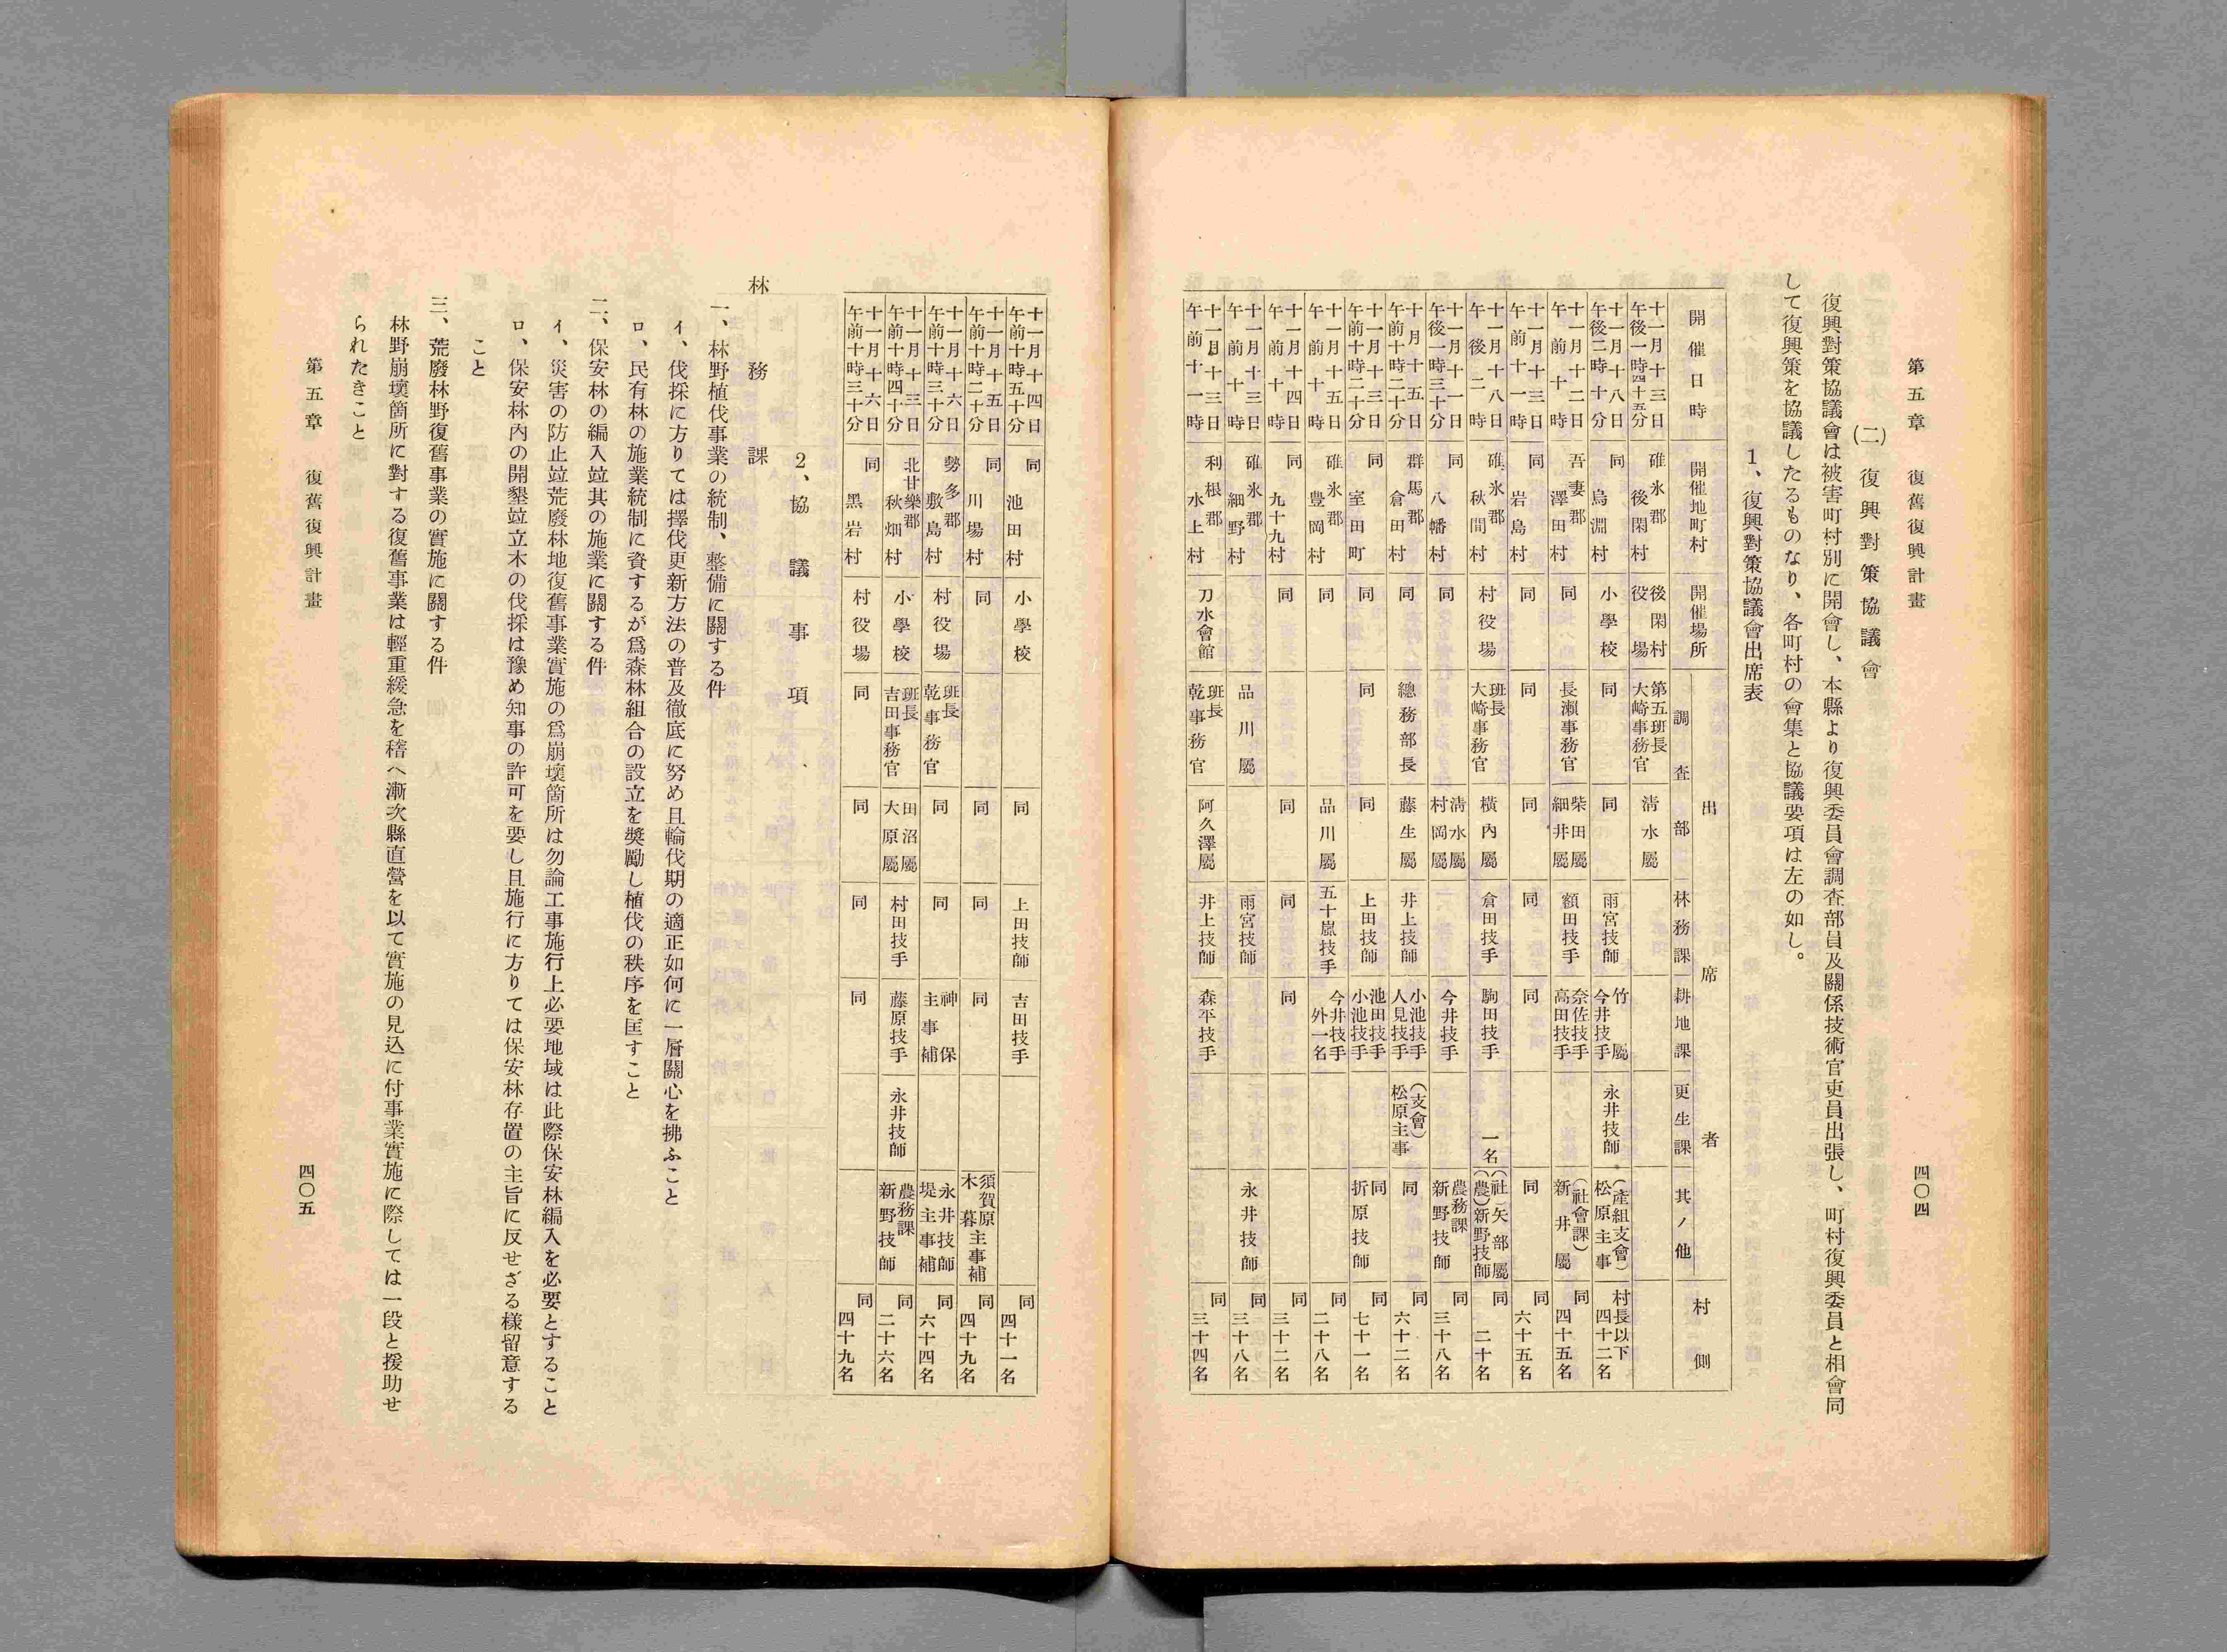 第五章　復舊復興計畫
四〇四
(二)　復興對策協議會
復興對策協議會は被害町村別に開會し、本縣より復興委員會調査部員及關係技術官吏員出張し、町村復興委員と相會同
して復興策を協議したるものなり、各町村の會集と協議要項は左の如し。
1、復興對策協議會出席表
開催日時　開催地町村　開催場所　出席者　村側
調査部　林務課　耕地課　更生課　其ノ他
十一月十三日午後一時四十五分　碓氷郡後閑村　後閑村役場　第五班長大崎事務官　淸水屬
十一月十八日午後二時十分　同烏淵村　小學校　同　同　雨宮技師　竹屬今井技手　永井技師　(產組支會)松原主事　村長以下四十二名
十一月十二日午前十時　吾妻郡澤田村　同　長瀨事務官　柴田屬細井屬　額田技手　奈佐技手高田技手　(社會課)新井屬　同四十五名
十一月十三日午前十一時　同岩島村　同　同　同　同　同　同　六十五名
十一月十八日午後二時　碓氷郡秋間村　村役場　班長大崎事務官　橫內屬　倉田技手　駒田技手　一名　(社)矢部屬(農)新野技師　同二十名
十一月十一日午後一時三十分　同八幡村　同　淸水屬村岡屬　今井技手　農務課新野技師　同三十八名
十月十五日午前十時二十分　群馬郡倉田村　同　總務部長　藤生屬　井上技師　小池技手人見技手　(支會)松原主事　同　同六十二名
十一月十三日午前十時二十分　同室田町　同　同　同　上田技師　池田技手小池技手　同折原技師　同七十一名
十一月十五日午前十時　碓氷郡豊岡村　同　品川屬　五十嵐技手　今井技手外一名　同二十八名
十一月十四日午前十時　同九十九村　同　同　同　同　同三十二名
十一月十三日午前十時　碓氷郡細野村　品川屬　雨宮技師　永井技師　同三十八名
十一月十三日午前十一時　利根郡水上村　刀水會館　班長乾事務官　阿久澤屬　井上技師　森平技手　同三十四名
十一月十四日午前十時五十分　同池田村　小學校　同　上田技師　吉田技手　同四十一名
十一月十五日午前十時二十分　同川場村　同　同　同　同　須賀原主事補木暮　同四十九名
十一月十六日午前十時三十分　勢多郡敷島村　村役場　班長乾事務官　同　同　神保主事補　永井技師堤主事補　同六十四名
十一月十三日午前十時四十分　北甘樂郡秋畑村　小學校　班長吉田事務官　田沼屬大原屬　村田技手　藤原技手　永井技師　農務課新野技師　同二十六名
十一月十六日午前十時三十分　同黑岩村　村役場　同　同　同　同　同四十九名
2、協議事項
林務課
一、林野植伐事業の統制、整備に關する件
イ、伐採に方りては擇伐更新方法の普及徹底に努め且輪伐期の適正如何に一層關心を拂ふこと
ロ、民有林の施業統制に資するが爲森林組合の設立を獎勵し植伐の秩序を匡すこと
二、保安林の編入竝其の施業に關する件
イ、災害の防止竝荒廢林地復舊事業實施の爲崩壞箇所は勿論工事施行上必要地域は此際保安林編入を必要とすること
ロ、保安林內の開墾竝立木の伐採は豫め知事の許可を要し且施行に方りては保安林存置の主旨に反せざる樣留意する
こと
三、荒廢林野復舊事業の實施に關する件
林野崩壞箇所に對する復舊事業は輕重緩急を稽へ漸次縣直營を以て實施の見込に付事業實施に際しては一段と援助せ
られたきこと
第五章　復舊復興計畫
四〇五